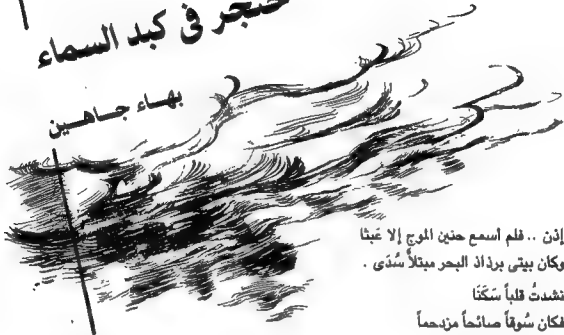 خنجر في كبد السماء
بهاء جاهين
إذن .. فلم أسمع حنين الموج إلا عَبثا
وكان بيتى برذاذ البحر مبتلاً سُدًى .
نشدتُ قلباً سَكَنَا
فكان سُوقاً صائحاً مزدحماً